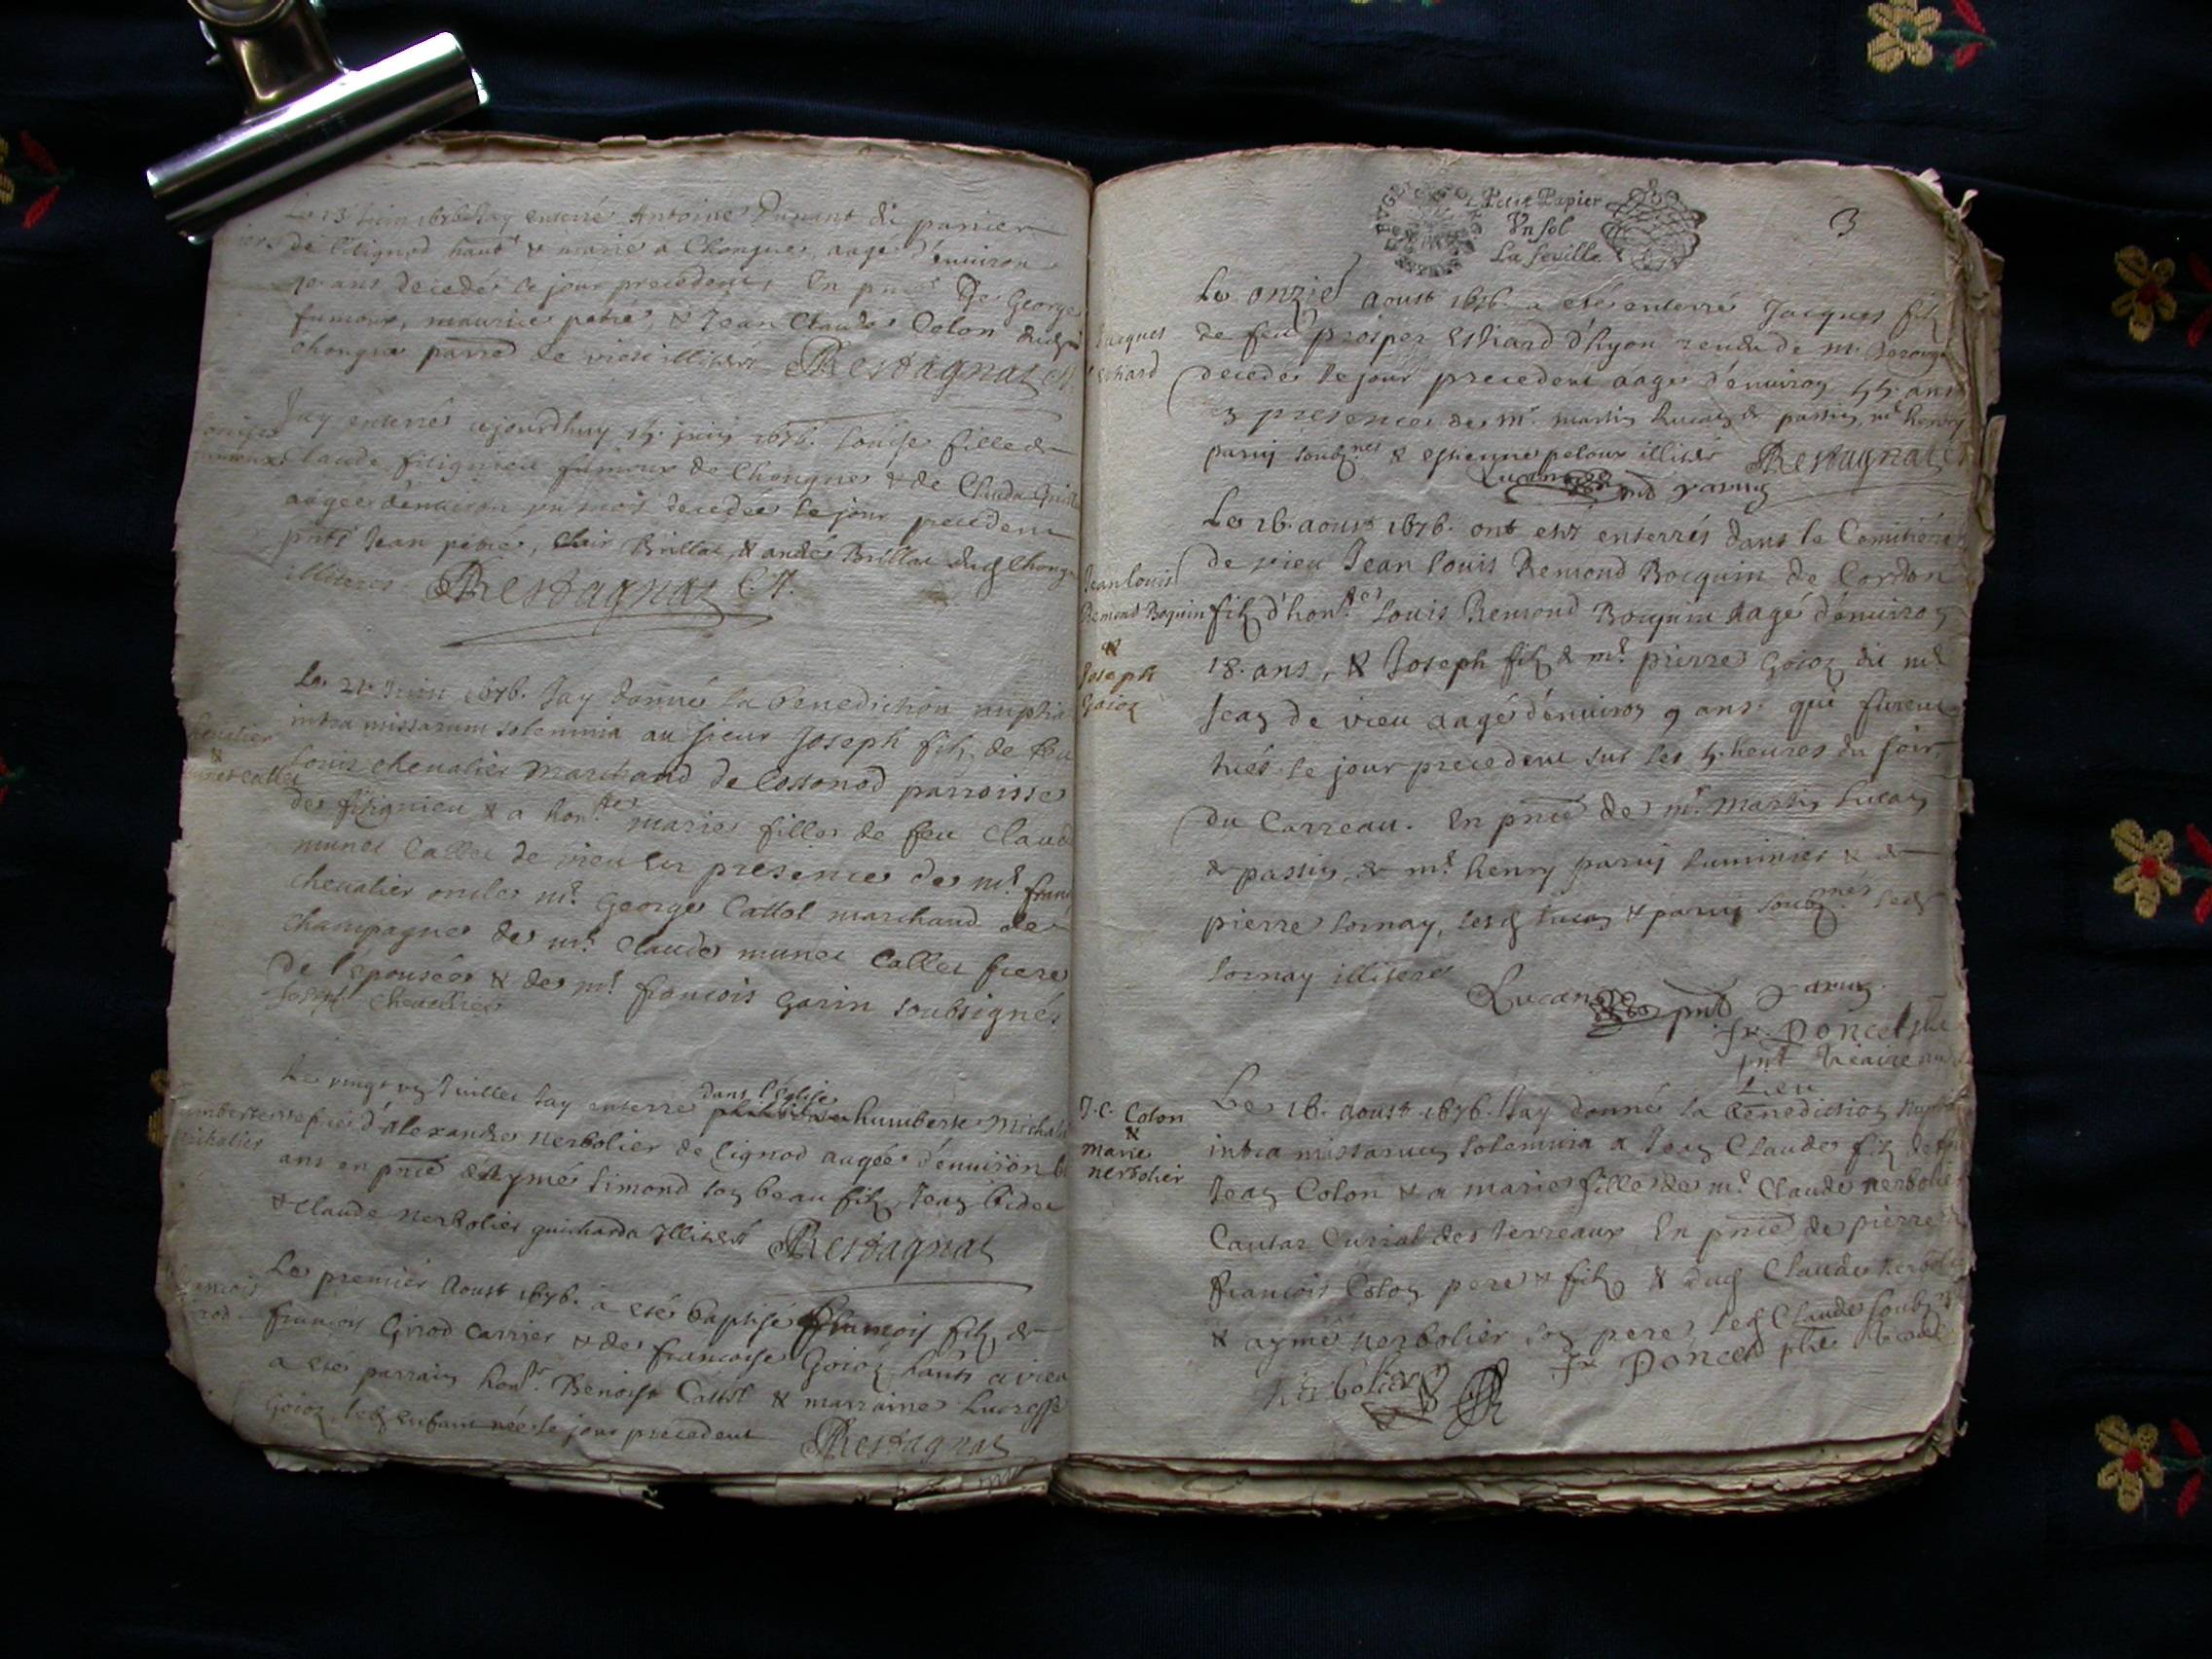 Le 13 Juin 1676 Jay enterré Antoine Durant dit panier
de lilignod haut & marié a Chongnes, aagé d'enuiron
70 ans decedé le jour precedent, En pnce de George
fumoux, maurice petre, & Jean Claude Colon dud
Chongne parre de vieu illiteré Restagnat
Jay enterré cejourdhuy 14 juin 1676. Louise fille de
Claude filignieu fumoux de Chongnes & de Clauda
aagee denuiron vn mois decedee le jour precedent
pnts Jean petre, Clair Brillat, & andré Brillat dud Chongne
illiteres Restagnat C.
fumoux
Le 21 Juin 1676. Jay donné la Benediction nuptia
intra missarum solemnia au sieur Joseph filz de feu
Louis cheualier Marchand de Cossonod parroisse
de fitignieu & a hon.te marie fille de feu Claude
munet Callet de vieu En presence de m.e fran
cheualier oncle m.e George Cattol marchand de
Champagne de m.e Claude munet Callet frere
De l'epousée & de m.e francois Garin soubsignés
Joseph Cheuallier
cheualier
&
munet callet
dans l'eglise
Le vingt vn Juillet Jay enterre humberte Michal
d'Alexandre nerbolier de lignod aagée d'enuiron
ans en pnce d'Aymé Simond son beau filz, Jean Bidet
& Claude nerbolier guicharda Illiteré Restagnat
michalier
Le premier Aoust 1676. a eté baptisé francois filz de
francois Girod Carrier & de francoise Goioz, hants a vieu
a eté parrain hon.le Benoist Cattol & marraine Lucresse
Goioz, led enfant née le jour precedent Restagnat
Petit Papier
Vn sol
La feuille
3
Le onzie aoust 1676. a eté enterré Jacques filz
de feu prosper Eshard d'hyon rendu de m.
decedé le jour precedent aagé d'enuiron 55. ans
presence de m.r martin Lucan de passin, m.e henry
paruy soubz.nes & estienne peloux illiteré Restagnat
Lucan pnt paruy
Jacques
Eshard
Le 16. aoust 1676. ont eté enterrés dans le Cemitiere
de vieu Jean Louis Remond Bocquin de Cordon
filz d'hon.te Louis Remond Bocquin aagé d'enuiron
18. ans, & Joseph filz de m.e pierre Goioz dit m.e
Jean de vieu aagé d'enuiron 9 ans. qui furent
tués le jour precedent sur les 5. heures du soir
Du Carreau. En pnce de m.r Martin Lucan
de passin, de m.e henry paruy luminier & de
pierre Sornay, lesd Lucan & paruy soubz.nés led
Sornay illiteré
Lucan pnt paruy.
fr. Poncet ptre
pnt Vicaire aud
Lieu
Jean Louis
Remond Boquin
&
Joseph
Goioz
Le 16. aoust 1676. Jay donné la Benediction nuptial
intra missarum solemnia a Jean Claude filz de feu
Jean Colon & a marie fille de m.e Claude nerbolier
Cautar Curial des terreaux En pnce de pierre &
francois Colon pere & filz & dud Claude nerbolier
& aymé nerbolier son pere, led Claude soubz.né
Nerbolier fr Poncet ptre vicaire
J. C. Colon
&
marie
nerbolier